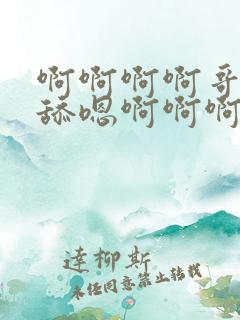 啊啊啊啊哥
舔嗯啊啊啊
達柳斯
未经同意禁止转载